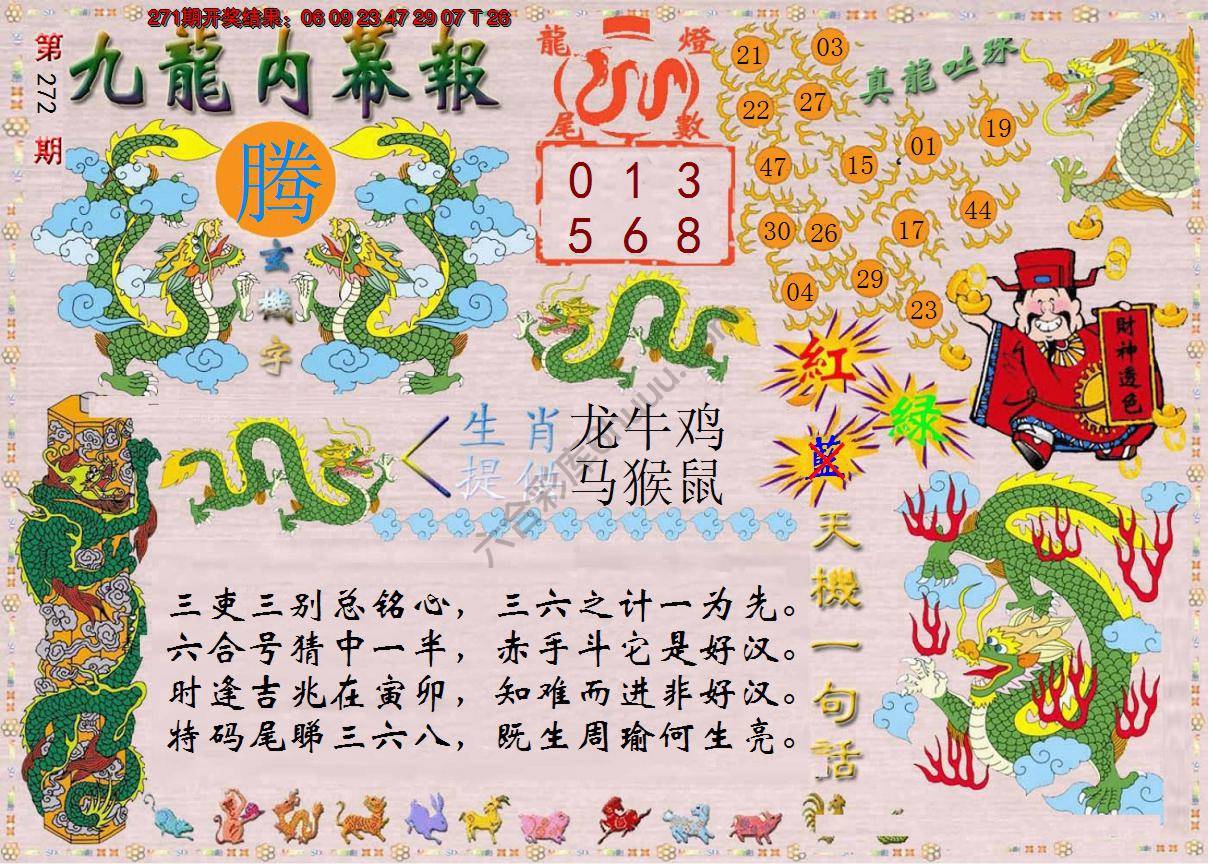 271期开奖结果：06 09 23 47 29 07 T 26
第272期
九龍内幕報
腾
玄機字
龍燈
尾數
0 1 3
5 6 8
真龍吐珠
21 03
22 27
47 15 01 19
30 26 17 44
04 29 23
財神透色
紅
綠
藍
生肖
提供
龙牛鸡
马猴鼠
三吏三别总铭心，三六之计一为先。
六合号猜中一半，赤手斗它是好汉。
时逢吉兆在寅卯，知难而进非好汉。
特码尾睇三六八，既生周瑜何生亮。
天機一句話